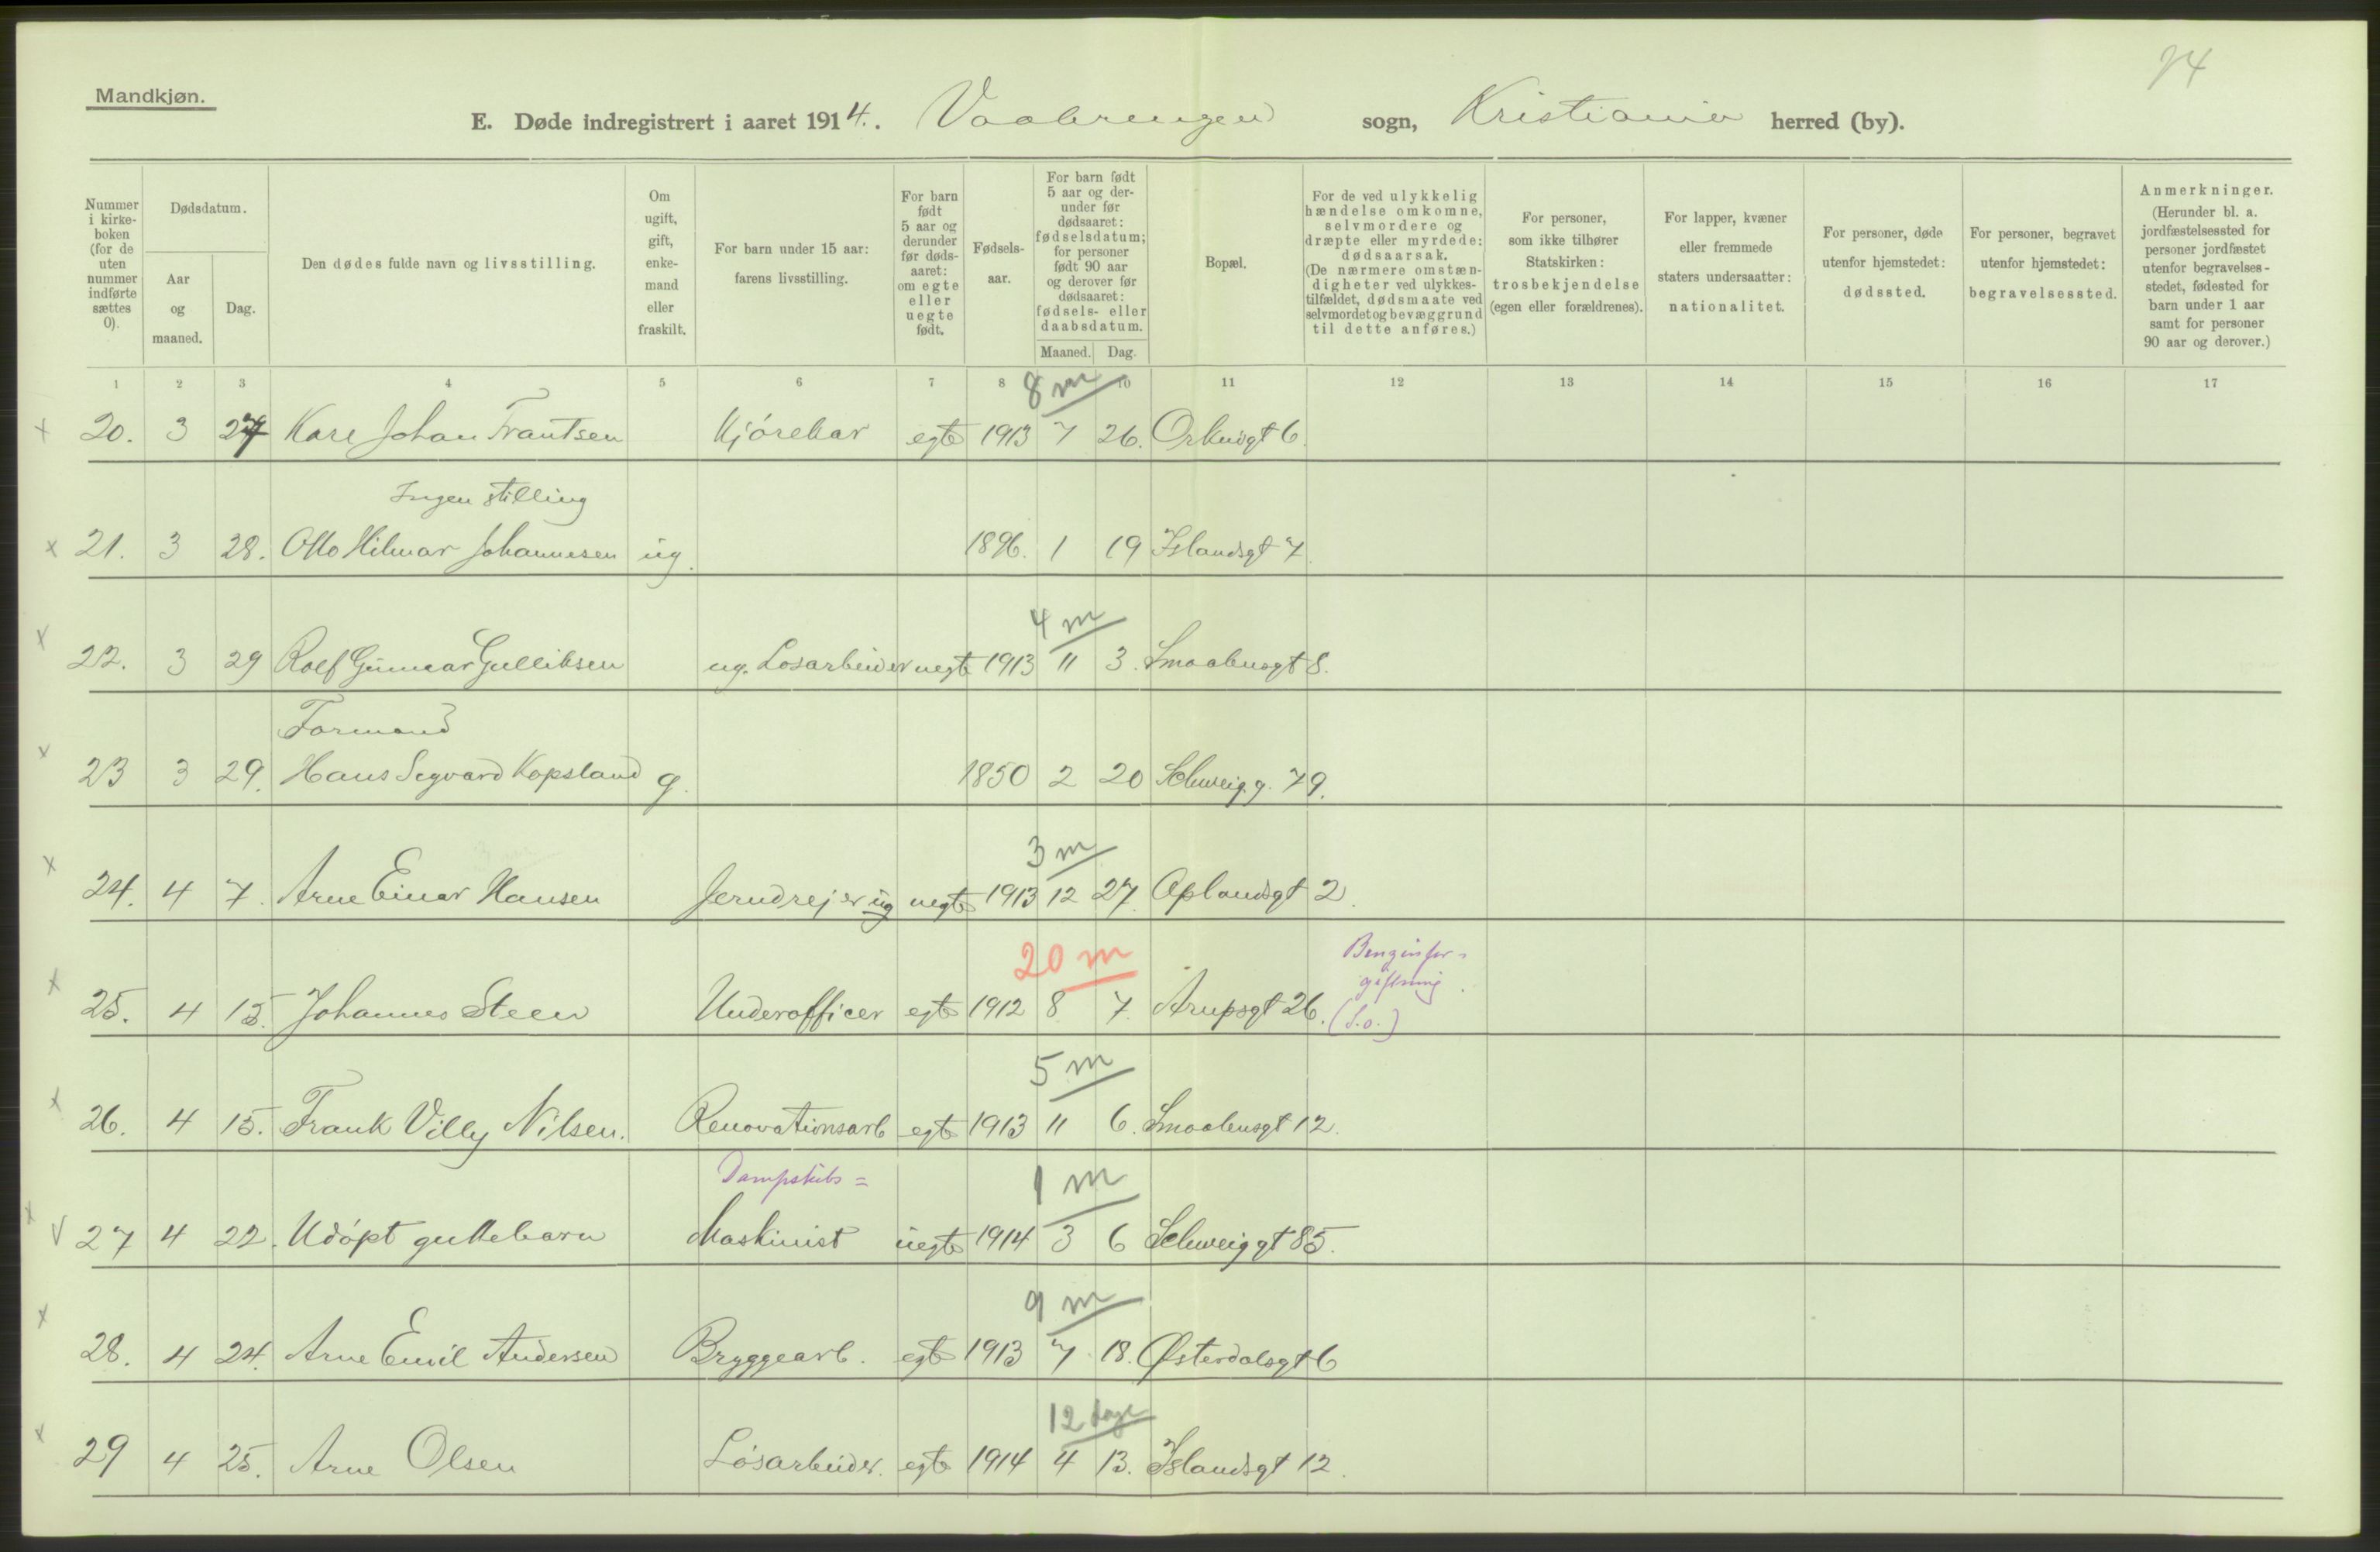 74
Mandkjøn.
E. Døde indregistrert i aaret 1914. Vaalerengen sogn, Kristiania herred (by).
Nummer i kirke- boken (for de uten nummer indførte sættes 0).
Dødsdatum.
Aar og maaned.
Dag.
Den dødes fulde navn og livsstilling.
Om ugift, gift, enke- mand eller fraskilt.
For barn under 15 aar: farens livsstilling.
For barn født 5 aar og derunder før døds- aaret: om egte eller uegte født.
Fødsels- aar.
For barn født 5 aar og der- under før dødsaaret: fødselsdatum; for personer født 90 aar og derover før dødsaaret: fødsels- eller daabsdatum.
Maaned. Dag.
Bopæl.
For de ved ulykkelig hændelse omkomne, selvmordere og dræpte eller myrdede: dødsaarsak. (De nærmere omstæn- digheter ved ulykkes- tilfældet, dødsmaate ved selvmordet og bevæggrund til dette anføres.)
For personer, som ikke tilhører Statskirken: trosbekjendelse (egen eller forældrenes).
For lapper, kvæner eller fremmede staters undersaatter: nationalitet.
For personer, døde utenfor hjemstedet: dødssted.
For personer, begravet utenfor hjemstedet: begravelsessted.
Anmerkninger. (Herunder bl. a. jordfæstelsessted for personer jordfæstet utenfor begravelses- stedet, fødested for barn under 1 aar samt for personer 90 aar og derover.)
1 2 3 4 5 6 7 8 10 11 12 13 14 15 16 17
8 m
x 20. 3 27 Kare Johan Frantsen Kjørekar egte 1913 7 26. Orknøgt 6.
Ingen stilling
x 21. 3 28. Otto Hilmar Johannesen ug. 1896. 1 19 Islandsgt 7.
4 m
x 22. 3 29 Rolf Gunnar Gulliksen ug. Løsarbeider uegte 1913 11 3. Smaalensgt 8.
Formand
x 23 3 29. Hans Segvard Kopsland g. 1850 2 20 Schweigg. 79.
3 m
x 24. 4 7. Arne Einar Hansen Jerndrejer ug uegte 1913 12 27. Oplandsgt 2.
20 m Benzinfor-
giftning.
x 25. 4 15. Johannes Steen Underofficer egte 1912 8 7. Arupsgt 26. (S.o.)
5 m
x 26. 4 15. Frank Villy Nilsen. Renovationsarb egte 1913 11 6. Smaalensgt 12.
Dampskibs= 1 m
x V 27 4 22. Udøpt guttebarn Maskinist uegte 1914 3 6 Schweiggt 85.
9 m
x 28. 4 24. Arne Emil Andersen Bryggearb. egte 1913 7 18. Østerdalsgt 6
12 dage
x 29 4 25. Arne Olsen Løsarbeider. egte 1914 4 13. Islandsgt 12.